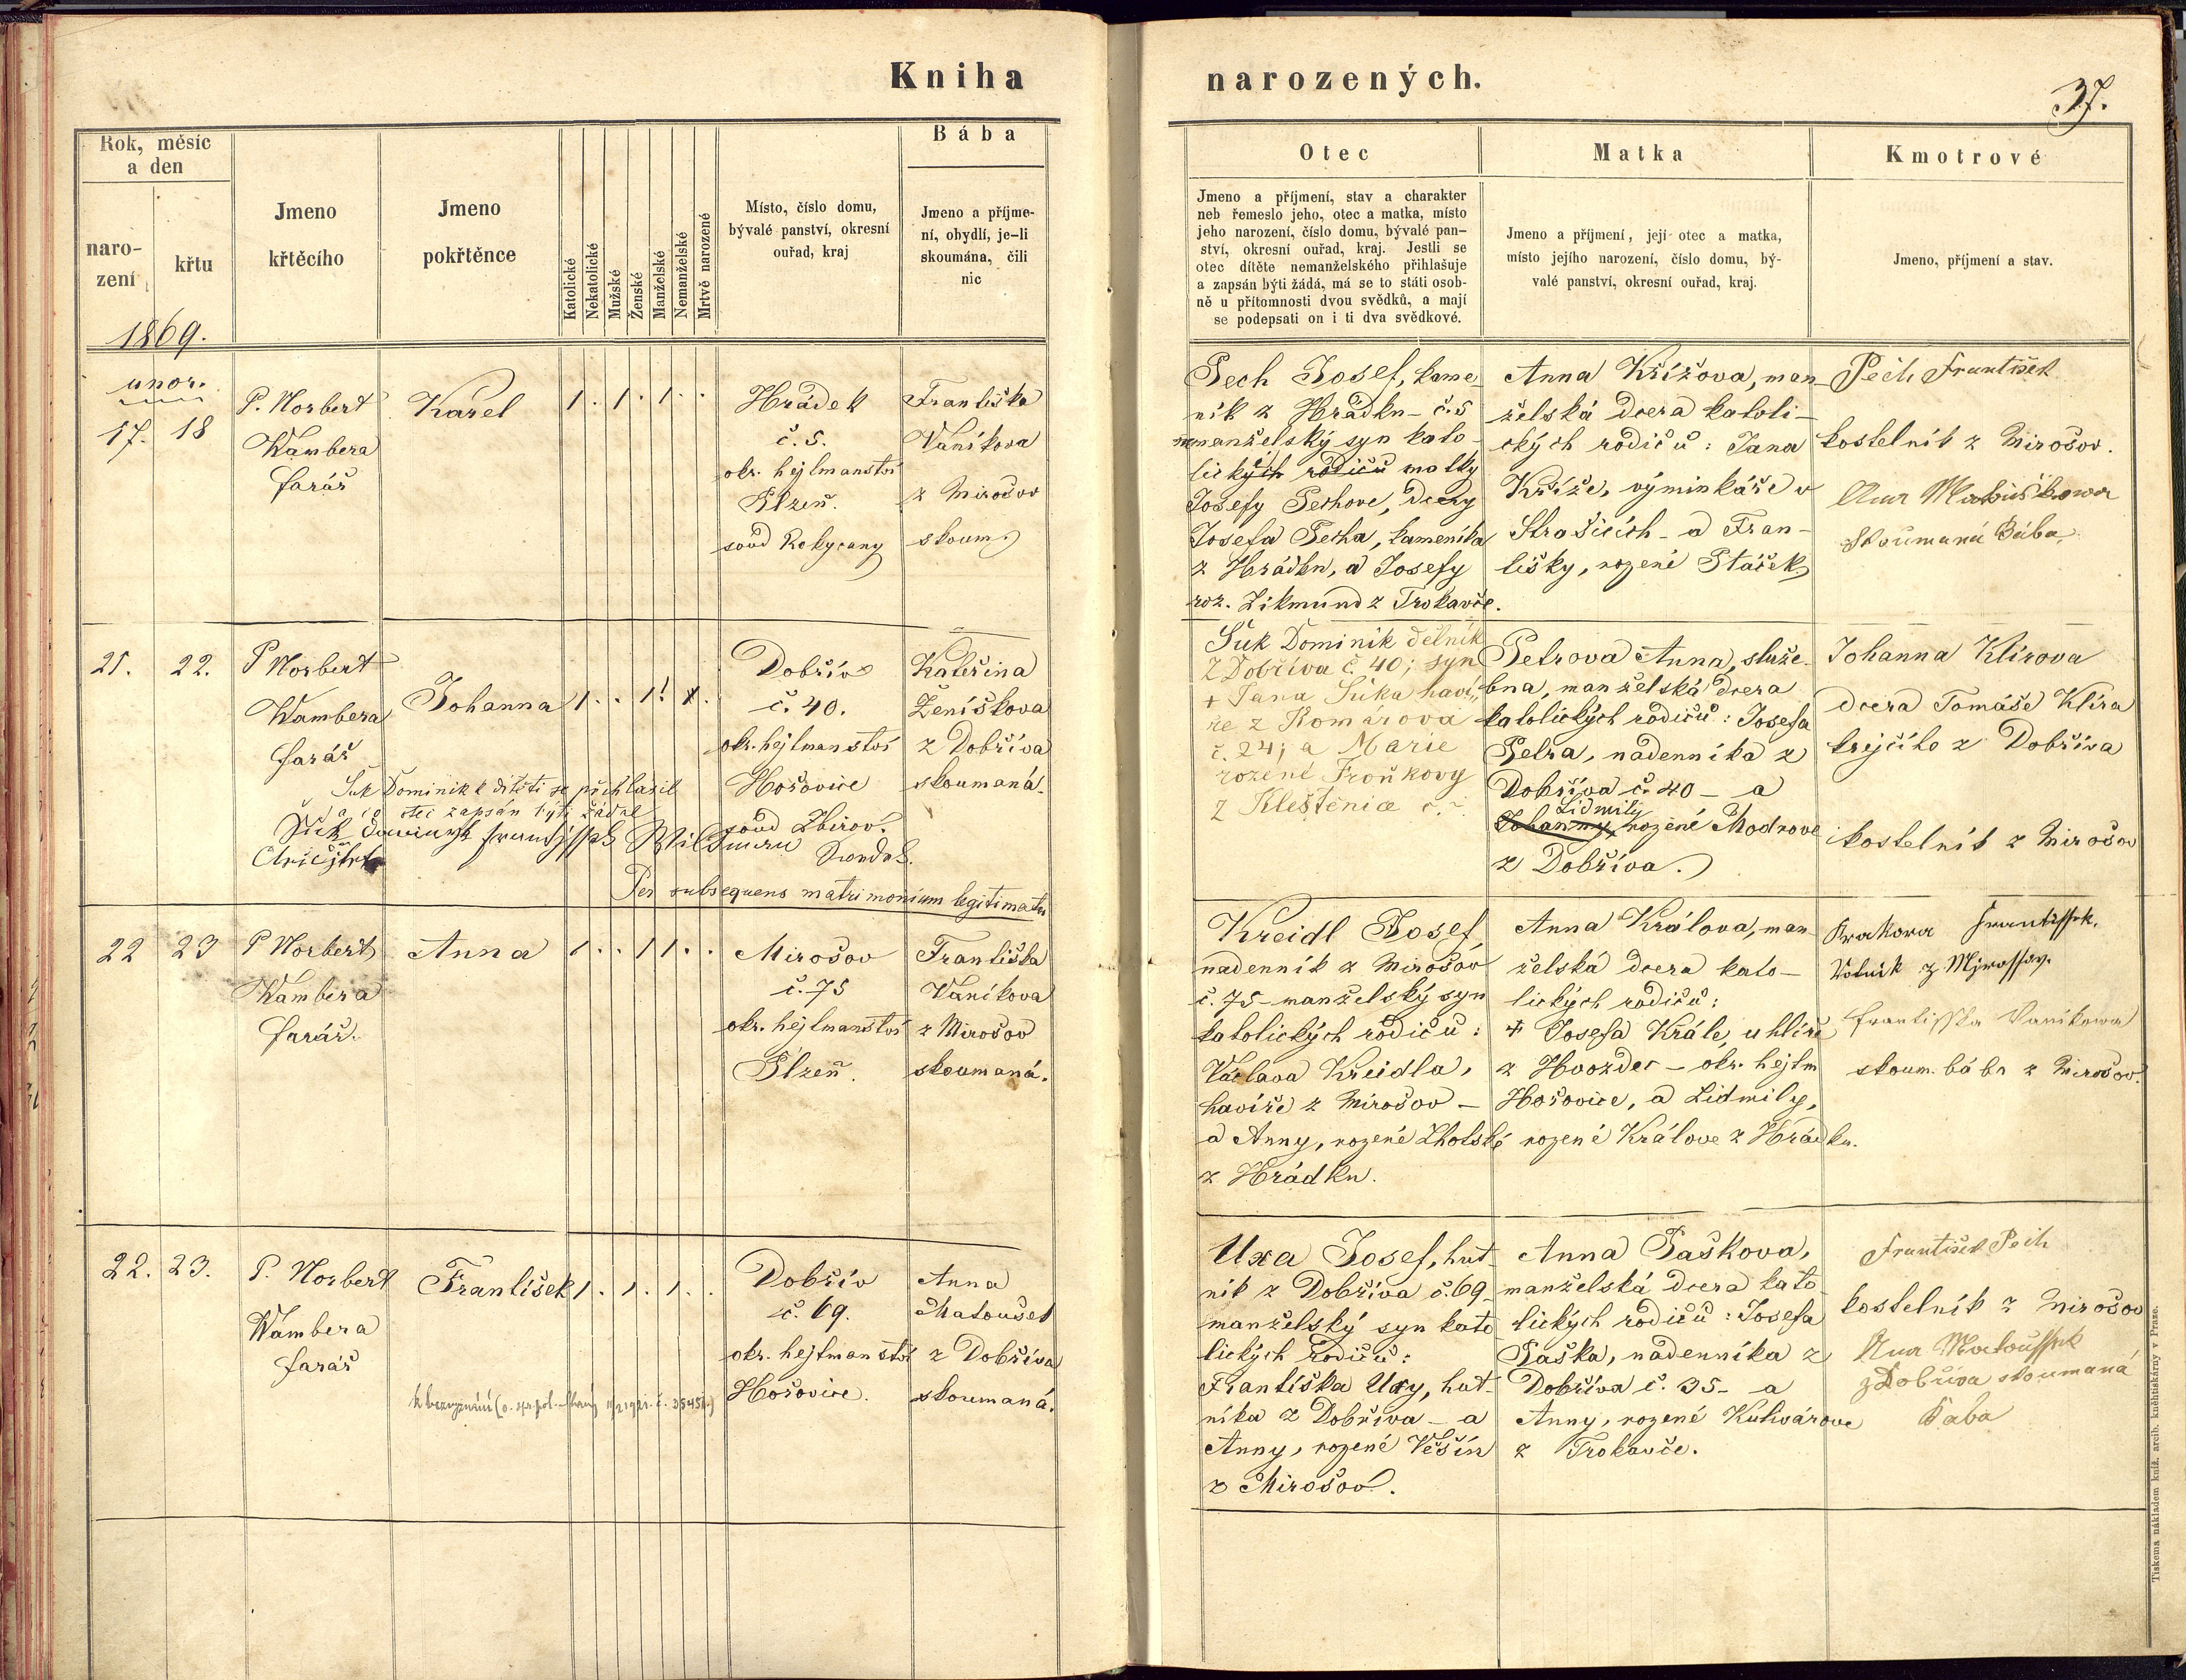 Kniha
narozených.
37.
Rok, měsíc
a den
naro-
zení
křtu
Jmeno
křtěcího
Jmeno
pokřtěnce
Katolické
Nekatolické
Mužské
Ženské
Manželské
Nemanželské
Mrtvě narozené
Místo, číslo domu,
bývalé panství, okresní
ouřad, kraj
Bába
Jmeno a příjme-
ní, obydlí, je-li
skoumána, čili
nic
Otec
Jmeno a příjmení, stav a charakter
neb řemeslo jeho, otec a matka, místo
jeho narození, číslo domu, bývalé pan-
ství, okresní ouřad, kraj. Jestli se
otec dítěte nemanželského přihlašuje
a zapsán býti žádá, má se to státi osob-
ně u přítomnosti dvou svědků, a mají
se podepsati on i ti dva svědkové.
Matka
Jmeno a příjmení, její otec a matka,
místo jejího narození, číslo domu, bý-
valé panství, okresní ouřad, kraj.
Kmotrové
Jmeno, příjmení a stav.
1869.
unor.
17. 18
P. Norbert
Wambera
farář
Karel
1 . 1 . 1 . .
Hrádek
č. 5.
okr. hejtmanství
Plzeň.
soud Rokycany
Františka
Vaníkova
z Mirošov
skoum.
Pech Josef, kame-
ník z Hrádku - č. 5
nemanželský syn kato-
lických rodičů matky
Josefy Pechove, dcery
Josefa Pecha, kameníka
z Hrádku, a Josefy
roz. Zikmund z Trokavče.
Anna Křížova, man-
želská dcera katoli-
ckých rodičů: Jana
Kříže, výminkáře v
Strašicích - a Fran-
tišky, rozené Ptáček
Pech František
kostelník z Mirošov.
Anna Matouškowa
skoumaná Bába
21. 22.
P Norbert
Wambera
farář
Johanna
1 . . 1 ! x .
Dobřív
č. 40.
okr. hejtmanství
Hořovice
soud Zbirov.
Kateřina
Ženíškova
z Dobříva
skoumaná.
Šuk Dominik k dítěti se přihlásil
a co otec zapsán býti žádal
Per subsequens matrimonium legitimata
Šuk Dominik dělník
z Dobříva č. 40; syn
+ Jana Šuka haví-
ře z Komárova
č. 24; a Marie
rozené Froňkovy
z Kleštěnice č. ~
Petrova Anna, služe-
bna, manželská dcera
katolických rodičů: Josefa
Petra, nadenníka z
Dobříva č. 40 - a
Lidmily
Johanny, rozené Modrove
z Dobříva.
Johanna Klírova
dcera Tomáše Klíra
krejčího z Dobříva
kostelník z Mirošov
22 23
P Norbert
Wambera
farář.
Anna
1 . . 1 1 . .
Mirošov
č. 75
okr. hejtmanství
Plzeň.
Františka
Vaníkova
z Mirošov
skoumaná.
Kreidl Josef,
nadenník z Mirošov
č. 75 - manželský syn
katolických rodičů:
Václava Kreidla,
havíře z Mirošov -
a Anny, rozené Lhotské
z Hrádku.
Anna Králova, man-
želská dcera kato-
lických rodičů:
+ Josefa Krále, uhlíře
z Hvozdec - okr. hejtm
Hořovice, a Lidmily,
rozené Králove z Hrádku.
Frantissek.
z Myrossov.
Frantisska Vanikowa
skoum. bába z Mirošov.
22. 23.
P. Norbert
Wambera
farář
František
1 . 1 . 1 . .
Dobřív
č. 69.
okr. hejtmanství
Hořovice.
Anna
Matoušek
z Dobříva
skoumaná.
Uxa Josef, hut-
ník z Dobříva č. 69 -
manželský syn kato-
lických rodičů:
Františka Uxy, hut-
níka z Dobříva - a
Anny, rozené Věšín
z Mirošov.
Anna Paškova,
manželská dcera kato-
lických rodičů: Josefa
Paška, nadenníka z
Dobříva č. 35 - a
Anny, rozené Kuhvárove
z Trokavče.
František Pech
kostelník z Mirošov
Anna Matoussek
z Dobříva skoumaná
Baba
Tiskema nákladem kníž. arcib. knihtiskárny v Praze.